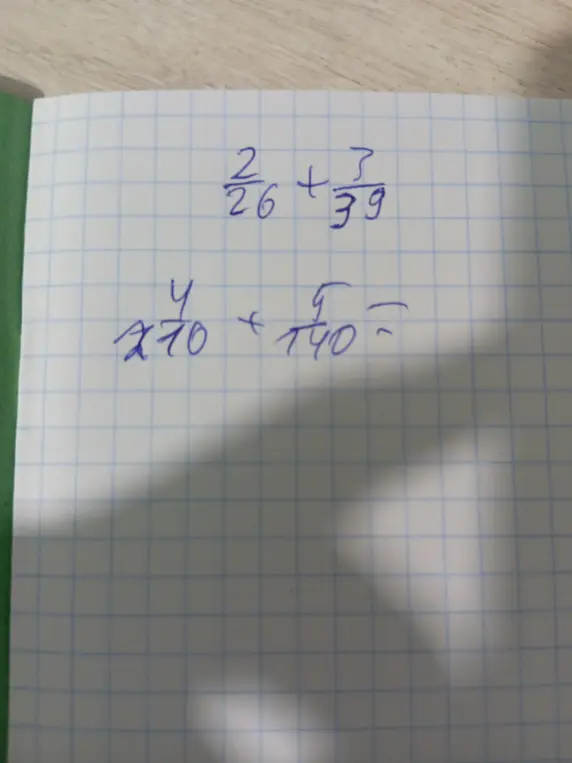 2/26 + 3/39
4/210 + 5/140 =